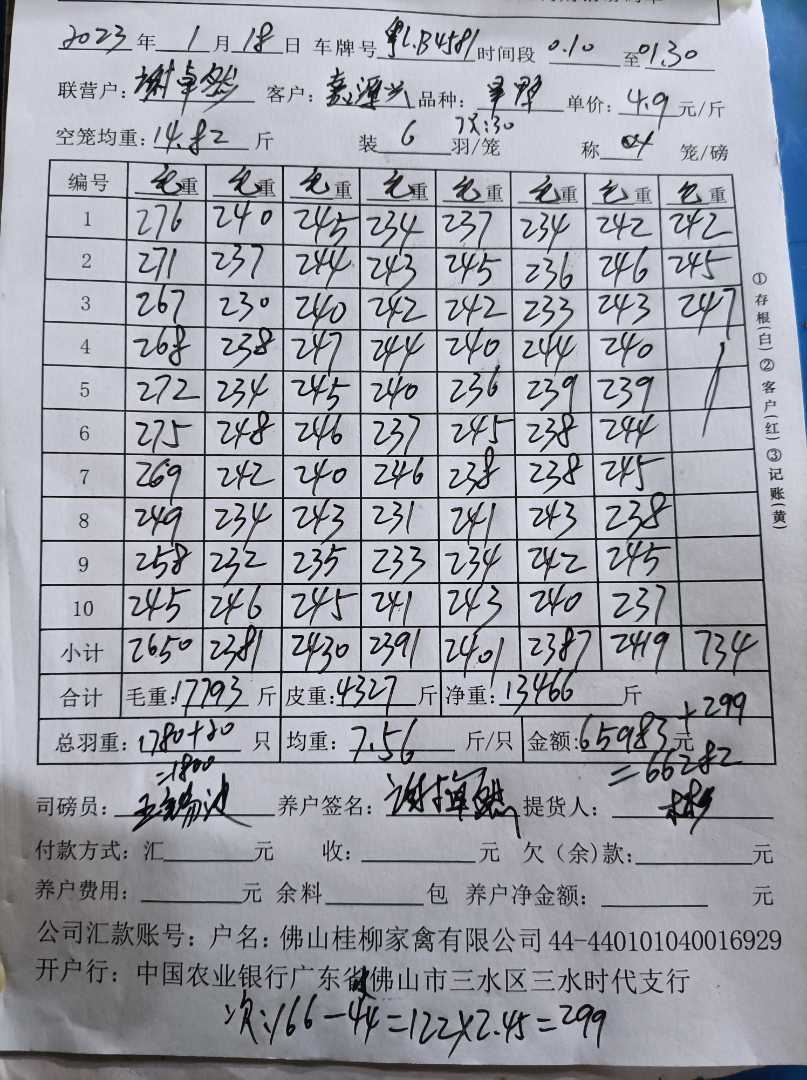 2023 年 1 月 18 日 车牌号 粤L.B4581 时间段 0.10 至 01.30
联营户: 谢卓然 客户: 源兴 品种: 单价: 4.9 元/斤
空笼均重: 14.82 斤 装 6 羽/笼 次:30 称 4 笼/磅
编号 毛重 毛重 毛重 毛重 毛重 毛重 毛重 毛重
1 276 240 245 234 237 234 242 242
2 271 237 244 243 245 236 246 245
3 267 230 240 242 242 233 243 247
4 268 238 247 244 240 244 240
5 272 234 245 240 236 239 239
6 275 248 246 237 245 238 244
7 269 242 240 246 238 238 245
8 249 234 243 231 241 243 238
9 258 232 235 233 234 242 245
10 245 246 245 241 243 240 237
小计 2650 2381 2430 2391 2401 2387 2419 734
合计 毛重: 17793 斤 皮重: 4327 斤 净重: 13466 斤
总羽重: 1780+20 只 均重: 7.56 斤/只 金额: 65983 元 +299
=1800 =66282
司磅员: 养户签名: 谢卓然 提货人:
付款方式: 汇 元 收: 元 欠(余)款: 元
养户费用: 元 余料 包 养户净金额: 元
公司汇款账号: 户名: 佛山桂柳家禽有限公司 44-440101040016929
开户行: 中国农业银行广东省佛山市三水区三水时代支行
次:166-44=122×2.45=299
①存根(白)②客户(红)③记账(黄)